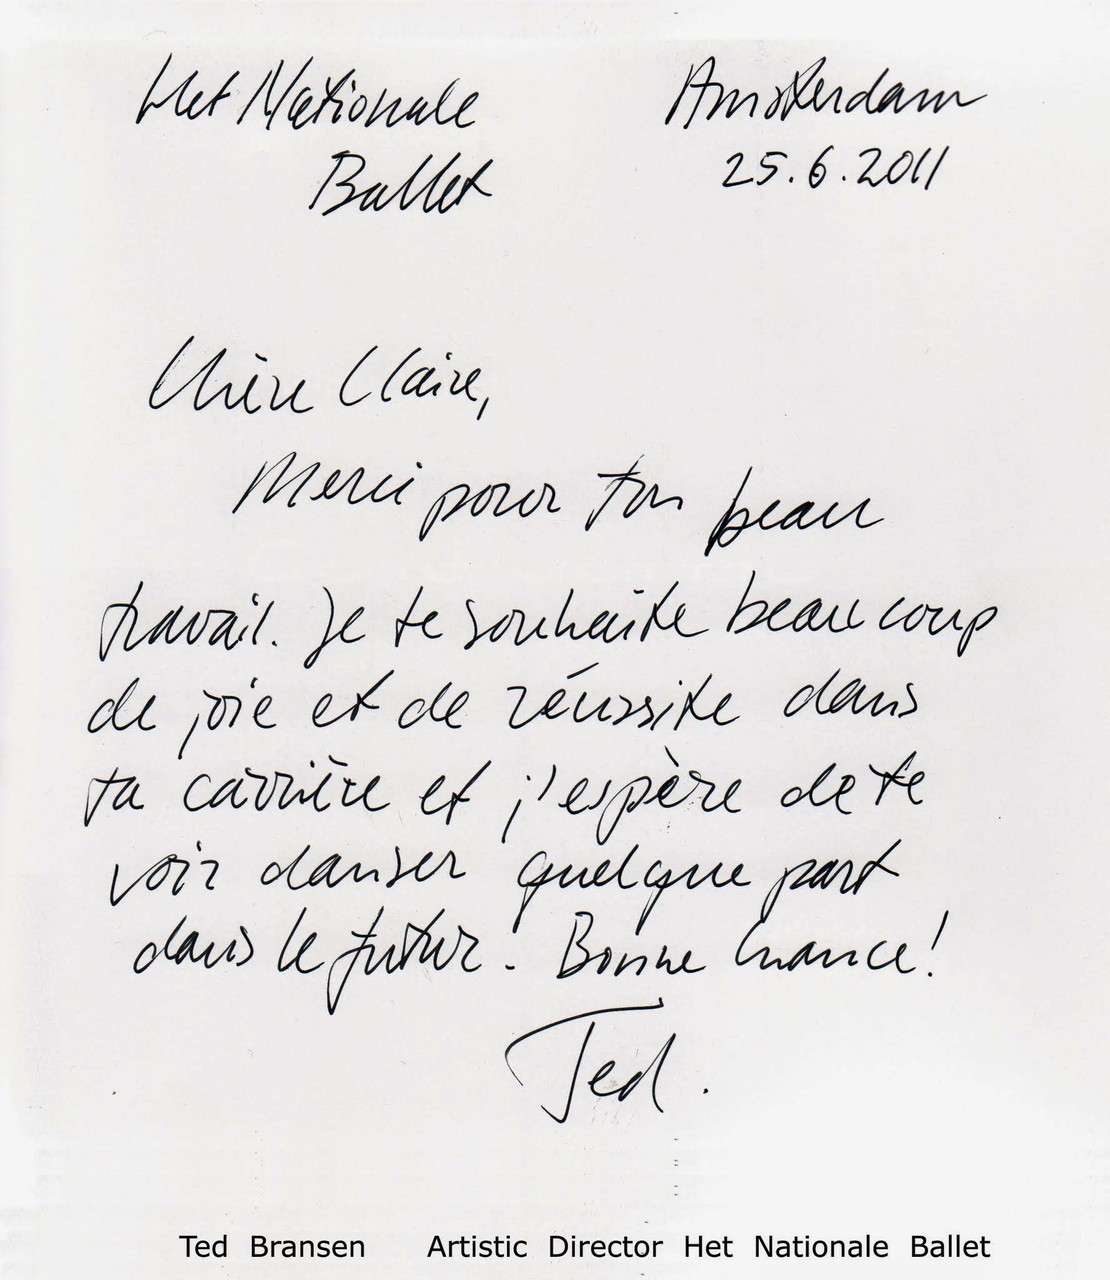 Het Nationale Amsterdam
Ballet 25.6.2011
Chère Claire,
Merci pour ton beau
travail. Je te souhaite beaucoup
de joie et de réussite dans
ta carrière et j'espère de te
voir danser quelque part
dans le futur. Bonne chance!
Ted.
Ted Bransen Artistic Director Het Nationale Ballet